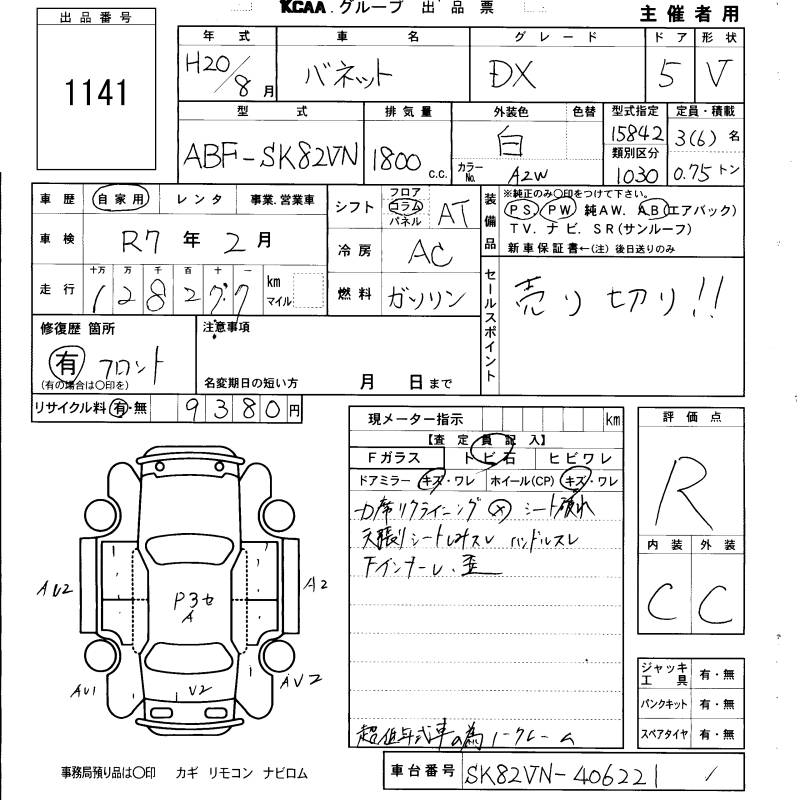 KCAA.グループ 出品票
主催者用
出品番号
1141
年式 車名 グレード ドア 形状
H20/8月 バネット DX 5 V
型式 排気量 外装色 色替 型式指定 定員・積載
ABF-SK82VN 1800 c.c. 白 カラーNo. A2W 15842 3(6)名
類別区分
1030 0.75トン
車歴 自家用 レンタ 事業.営業車
シフト フロア コラム パネル AT
装備品 ※純正のみ○印をつけて下さい。
PS PW 純AW. AB(エアバック)
TV. ナビ. SR(サンルーフ)
新車保証書←(注) 後日送りのみ
車検 R7年2月
冷房 AC
走行 十万 万 千 百 十 一
1 2 8 2 7 7 km マイル
燃料 ガソリン
セールスポイント 売り切り!!
修復歴 箇所
有 フロント
(有の場合は○印を)
注意事項
名変期日の短い方 月 日まで
リサイクル料 有・無 9380円
現メーター指示 km
【査定員記入】
Fガラス トビ石 ヒビワレ
ドアミラー キズ・ワレ ホイール(CP) キズ・ワレ
D席リクライニング シート破れ
天張りシート スレ ハンドルスレ
下インナーレ・歪
超低年式車の為ノークレーム
評価点
R
内装 外装
C C
AU2 A2
P3セ
A
AU1 V2 AU2
ジャッキ工具 有・無
パンクキット 有・無
スペアタイヤ 有・無
事務局預り品は○印 カギ リモコン ナビロム
車台番号 SK82VN-406221